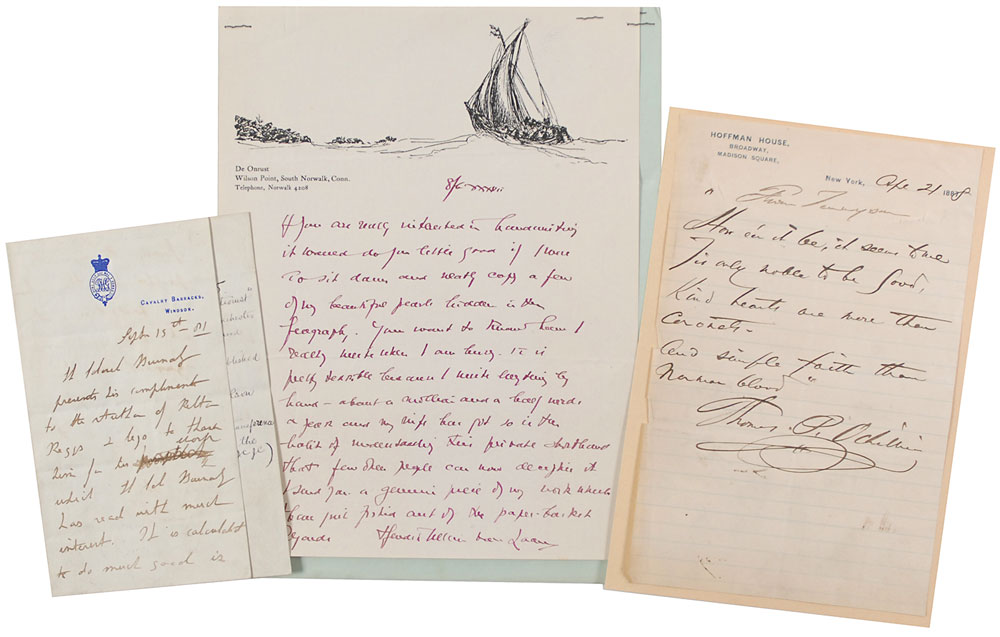 CAVALRY BARRACKS,
WINDSOR.
Septr 15th 81
Lt Colonel Burnaby
presents his compliments
to the author of
Regs & begs to thank
him for his
which Lt Col Burnaby
has read with much
interest. It is calculated
to do much good is
De Onrust
Wilson Point, South Norwalk, Conn.
Telephone, Norwalk 4108
If you are really interested in handwriting
it would do you little good if I were
to sit down and neatly copy a few
of my beautiful pearls hidden in the
Geography. You want to know how I
really write when I am busy. It is
pretty terrible because I write everything by
hand – about a million and a half words
a year and my wife has got so in the
habit of understanding this private shorthand
that few other people can now decipher it
I send you a genuine piece of my work which
I have just fished out of the paper-basket
Regards Hendrik Willem van Loon
HOFFMAN HOUSE,
BROADWAY,
MADISON SQUARE.
New York, Apl 21 1898
From Tennyson
"How e'er it be, it seems to me
Tis only noble to be Good,
Kind hearts are more than
Coronets-
And simple faith than
Norman blood"
Thomas P. Ochiltree